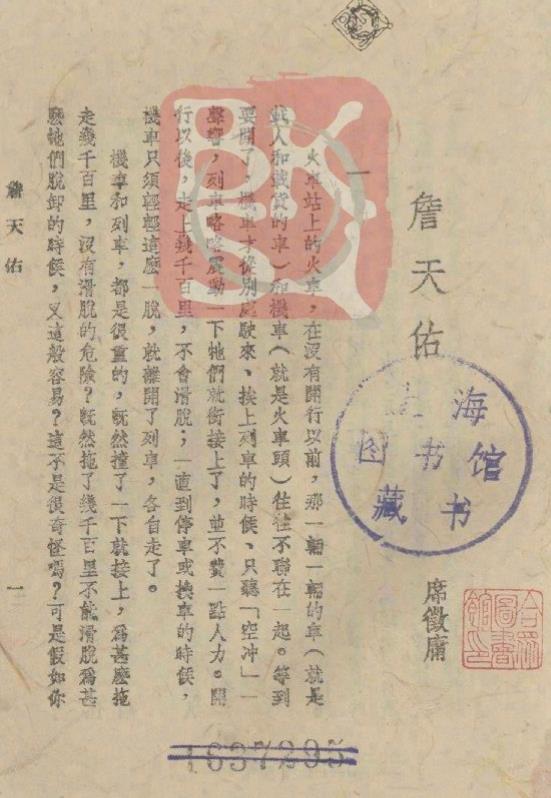 詹天佑
席徵庸
一
火車站上的火車，在沒有開行以前，那一輛一輛的車（就是
載人和載貨的車）和機車（就是火車頭）往往不聯在一起。等到
要開了，機車才從別處駛來、挨上列車的時候、只聽「空冲」一
聲響，列車略略震動一下牠們就銜接上了，並不費一點人力。開
行以後，走上幾千百里，不會滑脫；一直到停車或換車的時候，
機車只須輕輕這麼一脫，就離開了列車，各自走了。
機車和列車，都是很重的，旣然撞了一下就接上，爲甚麽拖
走幾千百里，沒有滑脫的危險？旣然拖了幾千百里不能滑脫爲甚
麽牠們脫卸的時候，又這般容易？這不是很奇怪嗎？可是假如你
詹天佑
一
上海
图书馆
藏书
合眾
圖書
館印
1637295